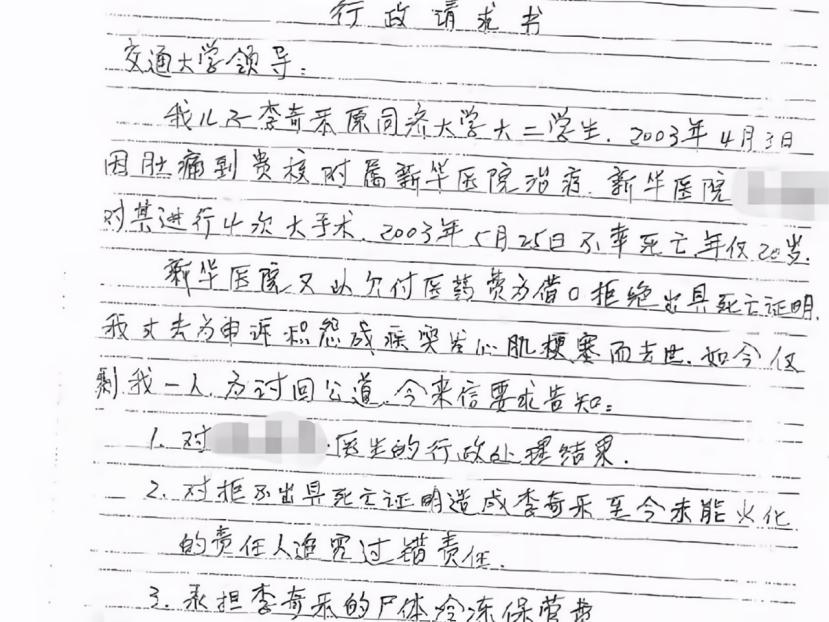 行政请求书
交通大学领导：
我儿子李奇乐原同济大学大二学生．2003年4月3日
因肚痛到贵校附属新华医院治疗．新华医院
对其进行4次大手术．2003年5月25日不幸死亡年仅20岁．
新华医院又以欠付医药费为借口拒绝出具死亡证明．
我丈夫为申诉积怨成疾突发心肌梗塞而去世．如今仅
剩我一人．为讨回公道．今来信要求告知：
1．对 医生的行政处理结果．
2．对拒不出具死亡证明造成李奇乐至今未能火化
的责任人追究过错责任．
3．承担李奇乐的尸体冷冻保管费